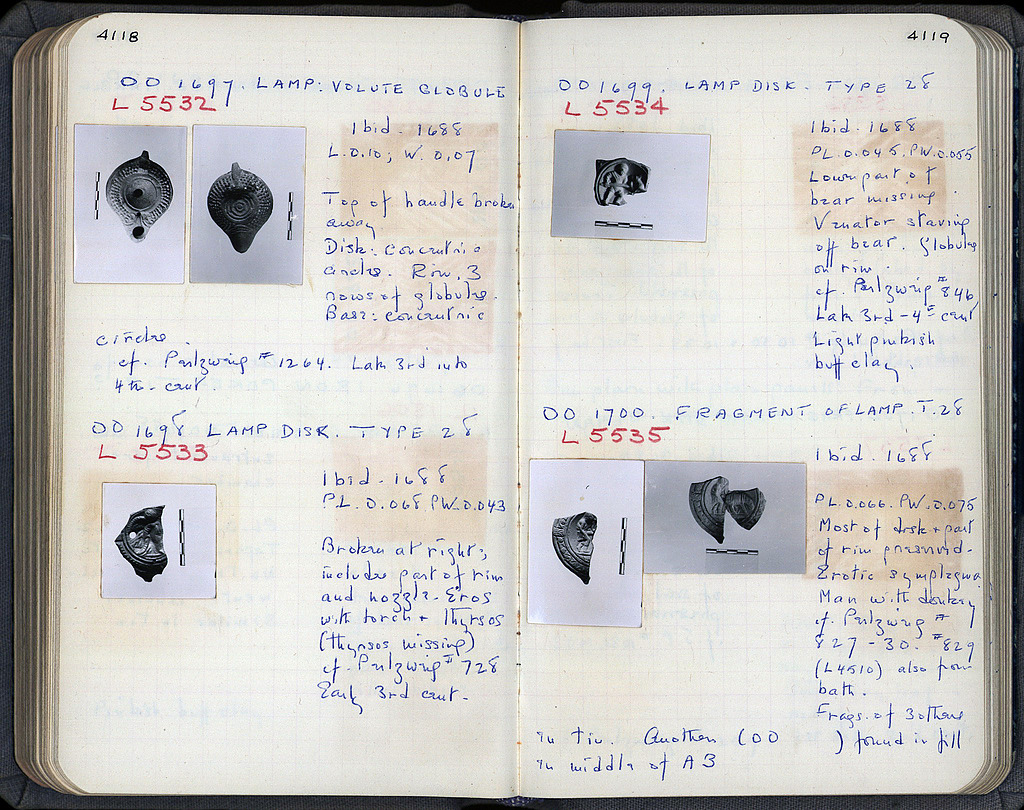 4118
OO 1697. LAMP: VOLUTE GLOBULE
L 5532
Ibid. 1688
L. 0.10; W. 0.07
Top of handle broken
away
Disk: concentric
circles. Rim, 3
rows of globules.
Base: concentric
circles.
cf. Perlzweig # 1264. Late 3rd into
4th cent.
OO 1698 LAMP DISK. TYPE 28
L 5533
Ibid. 1688
PL. 0.068 PW. 0.043
Broken at right;
includes part of rim
and nozzle. Eros
with torch + thyrsos
(thyrsos missing)
cf. Perlzweig # 728
Early 3rd cent.
4119
OO 1699. LAMP DISK. TYPE 28
L 5534
Ibid. 1688
PL. 0.045. PW. 0.055
Lower part of
bear missing.
Venator staving
off bear. Globules
on rim.
cf. Perlzweig # 846
Late 3rd - 4th cent
Light pinkish
buff clay.
OO 1700. FRAGMENT OF LAMP. T. 28
L 5535
Ibid. 1688
PL. 0.066. PW. 0.075
Most of disk + part
of rim preserved.
Erotic symplegma
Man with donkey
cf. Perlzweig #
827-30. #829
(L4510) also from
bath.
Frags. of 3 others
in tin. Another (OO ) found in fill
in middle of A3